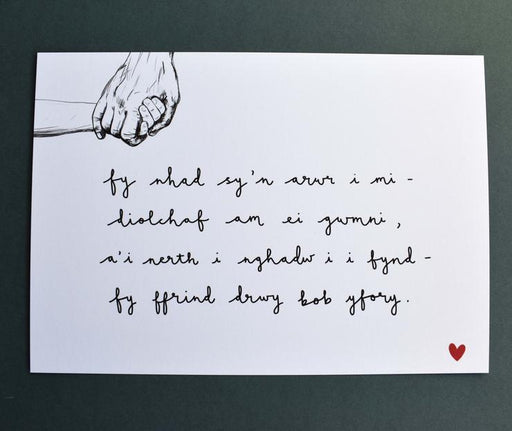 fy nhad sy'n arwr i mi -
diolchaf am ei gwmni,
a'i nerth i nghadw i i fynd -
fy ffrind drwy bob yfory.